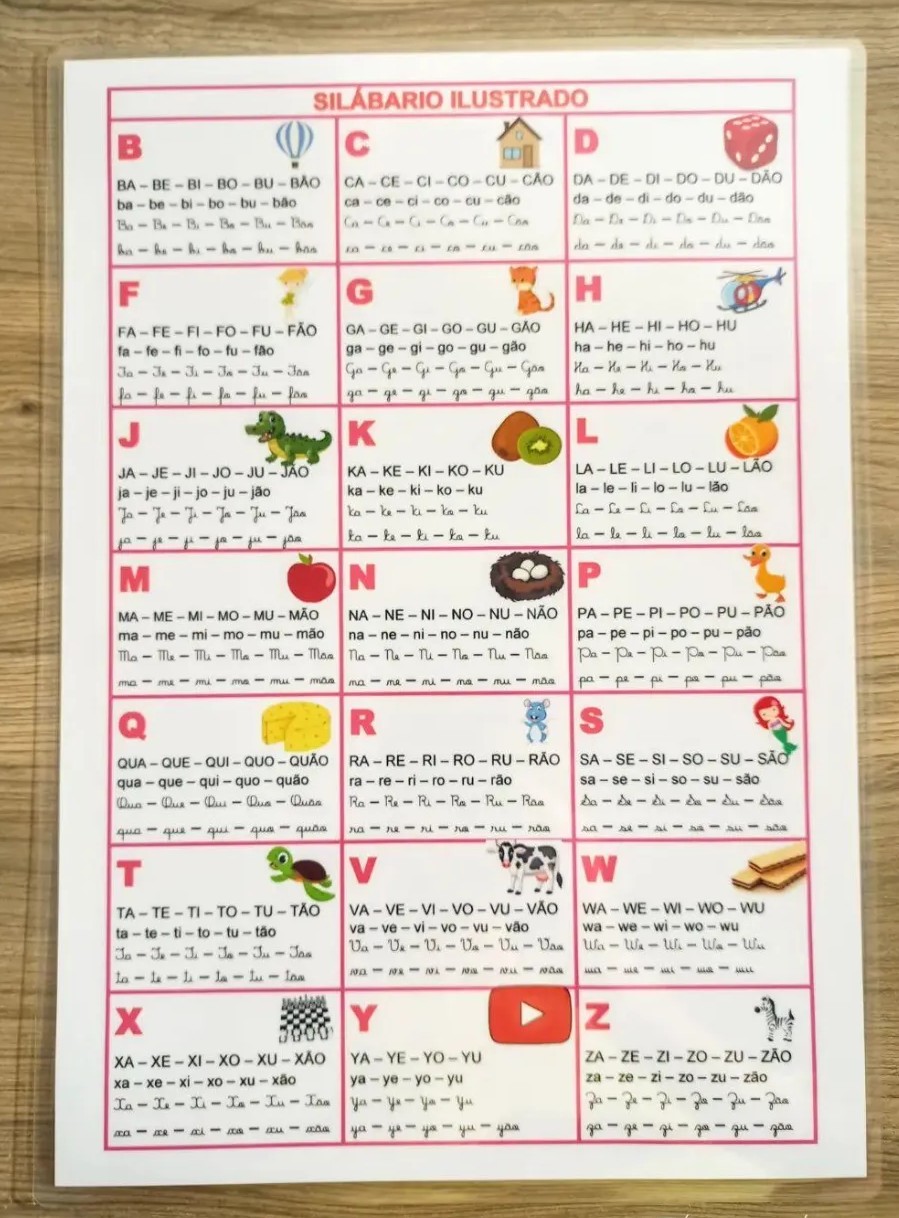 SILÁBARIO ILUSTRADO
B
BA – BE – BI – BO – BU – BÃO
ba – be – bi – bo – bu – bão
Ba – Be – Bi – Bo – Bu – Bão
ba – be – bi – bo – bu – bão
C
CA – CE – CI – CO – CU – CÃO
ca – ce – ci – co – cu – cão
Ca – Ce – Ci – Co – Cu – Cão
ca – ce – ci – co – cu – cão
D
DA – DE – DI – DO – DU – DÃO
da – de – di – do – du – dão
Da – De – Di – Do – Du – Dão
da – de – di – do – du – dão
F
FA – FE – FI – FO – FU – FÃO
fa – fe – fi – fo – fu – fão
Fa – Fe – Fi – Fo – Fu – Fão
fa – fe – fi – fo – fu – fão
G
GA – GE – GI – GO – GU – GÃO
ga – ge – gi – go – gu – gão
Ga – Ge – Gi – Go – Gu – Gão
ga – ge – gi – go – gu – gão
H
HA – HE – HI – HO – HU
ha – he – hi – ho – hu
Ha – He – Hi – Ho – Hu
ha – he – hi – ho – hu
J
JA – JE – JI – JO – JU – JÃO
ja – je – ji – jo – ju – jão
Ja – Je – Ji – Jo – Ju – Jão
ja – je – ji – jo – ju – jão
K
KA – KE – KI – KO – KU
ka – ke – ki – ko – ku
ka – ke – ki – ko – ku
ka – ke – ki – ko – ku
L
LA – LE – LI – LO – LU – LÃO
la – le – li – lo – lu – lão
La – Le – Li – Lo – Lu – Lão
la – le – li – lo – lu – lão
M
MA – ME – MI – MO – MU – MÃO
ma – me – mi – mo – mu – mão
Ma – Me – Mi – Mo – Mu – Mão
ma – me – mi – mo – mu – mão
N
NA – NE – NI – NO – NU – NÃO
na – ne – ni – no – nu – não
Na – Ne – Ni – No – Nu – Não
na – ne – ni – no – nu – não
P
PA – PE – PI – PO – PU – PÃO
pa – pe – pi – po – pu – pão
Pa – Pe – Pi – Po – Pu – Pão
pa – pe – pi – po – pu – pão
Q
QUA – QUE – QUI – QUO – QUÃO
qua – que – qui – quo – quão
Qua – Que – Qui – Quo – Quão
qua – que – qui – quo – quão
R
RA – RE – RI – RO – RU – RÃO
ra – re – ri – ro – ru – rão
Ra – Re – Ri – Ro – Ru – Rão
ra – re – ri – ro – ru – rão
S
SA – SE – SI – SO – SU – SÃO
sa – se – si – so – su – são
Sa – Se – Si – So – Su – São
sa – se – si – so – su – são
T
TA – TE – TI – TO – TU – TÃO
ta – te – ti – to – tu – tão
Ta – Te – Ti – To – Tu – Tão
ta – te – ti – to – tu – tão
V
VA – VE – VI – VO – VU – VÃO
va – ve – vi – vo – vu – vão
Va – Ve – Vi – Vo – Vu – Vão
va – ve – vi – vo – vu – vão
W
WA – WE – WI – WO – WU
wa – we – wi – wo – wu
Wa – We – Wi – Wo – Wu
wa – we – wi – wo – wu
X
XA – XE – XI – XO – XU – XÃO
xa – xe – xi – xo – xu – xão
Xa – Xe – Xi – Xo – Xu – Xão
xa – xe – xi – xo – xu – xão
Y
YA – YE – YO – YU
ya – ye – yo – yu
Ya – Ye – Yo – Yu
ya – ye – yo – yu – yão
Z
ZA – ZE – ZI – ZO – ZU – ZÃO
za – ze – zi – zo – zu – zão
Za – Ze – Zi – Zo – Zu – Zão
za – ze – zi – zo – zu – zão